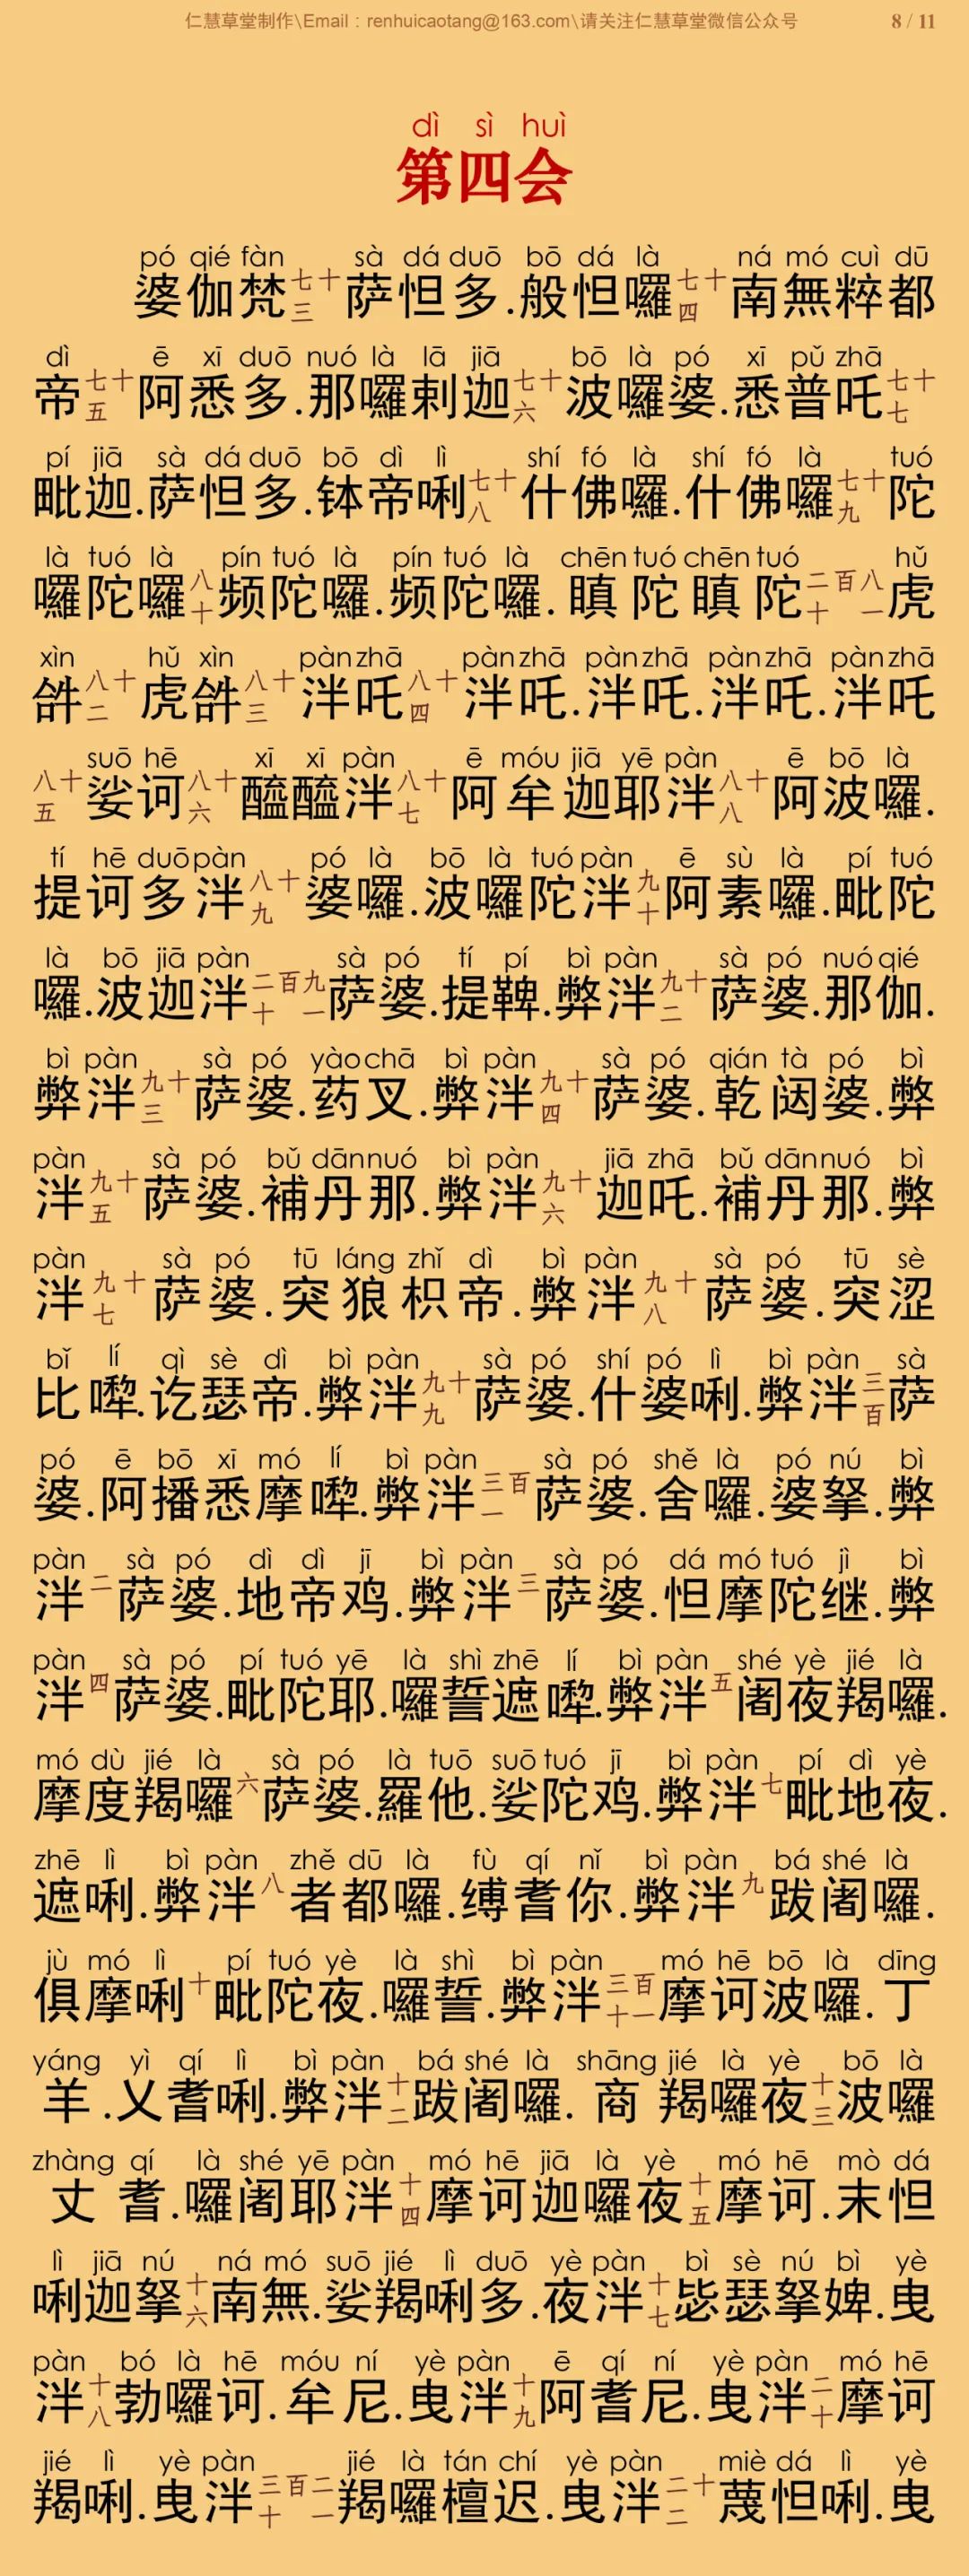 仁慧草堂制作\Email：renhuicaotang@163.com\请关注仁慧草堂微信公众号 8 / 11
dì sì huì
第四会
pó qié fàn sà dá duō bō dá là ná mó cuì dū
婆伽梵七十三萨怛多.般怛囉七十四南無粹都
dì ē xī duō nuó là lā jiā bō là pó xī pǔ zhā
帝七十五阿悉多.那囉剌迦七十六波囉婆.悉普吒七十七
pí jiā sà dá duō bō dì lì shí fó là shí fó là tuó
毗迦.萨怛多.钵帝唎七十八什佛囉.什佛囉七十九陀
là tuó là pín tuó là pín tuó là chēn tuó chēn tuó hǔ
囉陀囉八十频陀囉.频陀囉.瞋陀瞋陀二百八十一虎
xìn hǔ xìn pàn zhā pàn zhā pàn zhā pàn zhā pàn zhā
𤙖八十二虎𤙖八十三泮吒八十四泮吒.泮吒.泮吒.泮吒
suō hē xī xī pàn ē móu jiā yē pàn ē bō là
八十五娑诃八十六醯醯泮八十七阿牟迦耶泮八十八阿波囉.
tí hē duō pàn pó là bō là tuó pàn ē sù là pí tuó
提诃多泮八十九婆囉.波囉陀泮九十阿素囉.毗陀
là bō jiā pàn sà pó tí pí bì pàn sà pó nuó qié
囉.波迦泮二百九十一萨婆.提鞞.弊泮九十二萨婆.那伽.
bì pàn sà pó yào chā bì pàn sà pó qián tà pó bì
弊泮九十三萨婆.药叉.弊泮九十四萨婆.乾闼婆.弊
pàn sà pó bǔ dān nuó bì pàn jiā zhā bǔ dān nuó bì
泮九十五萨婆.補丹那.弊泮九十六迦吒.補丹那.弊
pàn sà pó tū láng zhǐ dì bì pàn sà pó tū sè
泮九十七萨婆.突狼枳帝.弊泮九十八萨婆.突涩
bǐ lí qì sè dì bì pàn sà pó shí pó lì bì pàn sà
比㗚.讫瑟帝.弊泮九十九萨婆.什婆唎.弊泮三百萨
pó ē bō xī mó lí bì pàn sà pó shě là pó nú bì
婆.阿播悉摩㗚.弊泮三百一萨婆.舍囉.婆拏.弊
pàn sà pó dì dì jī bì pàn sà pó dá mó tuó jì bì
泮二萨婆.地帝鸡.弊泮三萨婆.怛摩陀继.弊
pàn sà pó pí tuó yē là shì zhē lí bì pàn shé yè jié là
泮四萨婆.毗陀耶.囉誓遮㗚.弊泮五阇夜羯囉.
mó dù jié là sà pó là tuō suō tuó jī bì pàn pí dì yè
摩度羯囉六萨婆.羅他.娑陀鸡.弊泮七毗地夜.
zhē lì bì pàn zhě dū là fù qí nǐ bì pàn bá shé là
遮唎.弊泮八者都囉.缚耆你.弊泮九跋阇囉.
jù mó lì pí tuó yè là shì bì pàn mó hē bō là dīng
俱摩唎十毗陀夜.囉誓.弊泮三百十一摩诃波囉.丁
yáng yì qí lì bì pàn bá shé là shāng jié là yè bō là
羊.乂耆唎.弊泮十二跋阇囉.商羯囉夜十三波囉
zhàng qí là shé yē pàn mó hē jiā là yè mó hē mò dá
丈耆.囉阇耶泮十四摩诃迦囉夜十五摩诃.末怛
lì jiā nú ná mó suō jié lì duō yè pàn bì sè nú bì yè
唎迦拏十六南無.娑羯唎多.夜泮十七毖瑟拏婢.曳
pàn bó là hē móu ní yè pàn ē qí ní yè pàn mó hē
泮十八勃囉诃.牟尼.曳泮十九阿耆尼.曳泮二十摩诃
jié lì yè pàn jié là tán chí yè pàn miè dá lì yè
羯唎.曳泮三百二十一羯囉檀迟.曳泮二十二蔑怛唎.曳